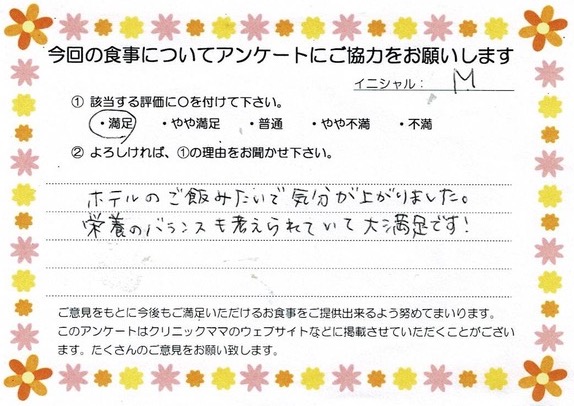 今回の食事についてアンケートにご協力をお願いします
イニシャル： M
① 該当する評価に○を付けて下さい。
・満足 ・やや満足 ・普通 ・やや不満 ・不満
② よろしければ、①の理由をお聞かせ下さい。
ホテルのご飯みたいで気分が上がりました。
栄養のバランスも考えられていて大満足です！
ご意見をもとに今後もご満足いただけるお食事をご提供出来るよう努めてまいります。
このアンケートはクリニックママのウェブサイトなどに掲載させていただくことがござい
ます。たくさんのご意見をお願い致します。